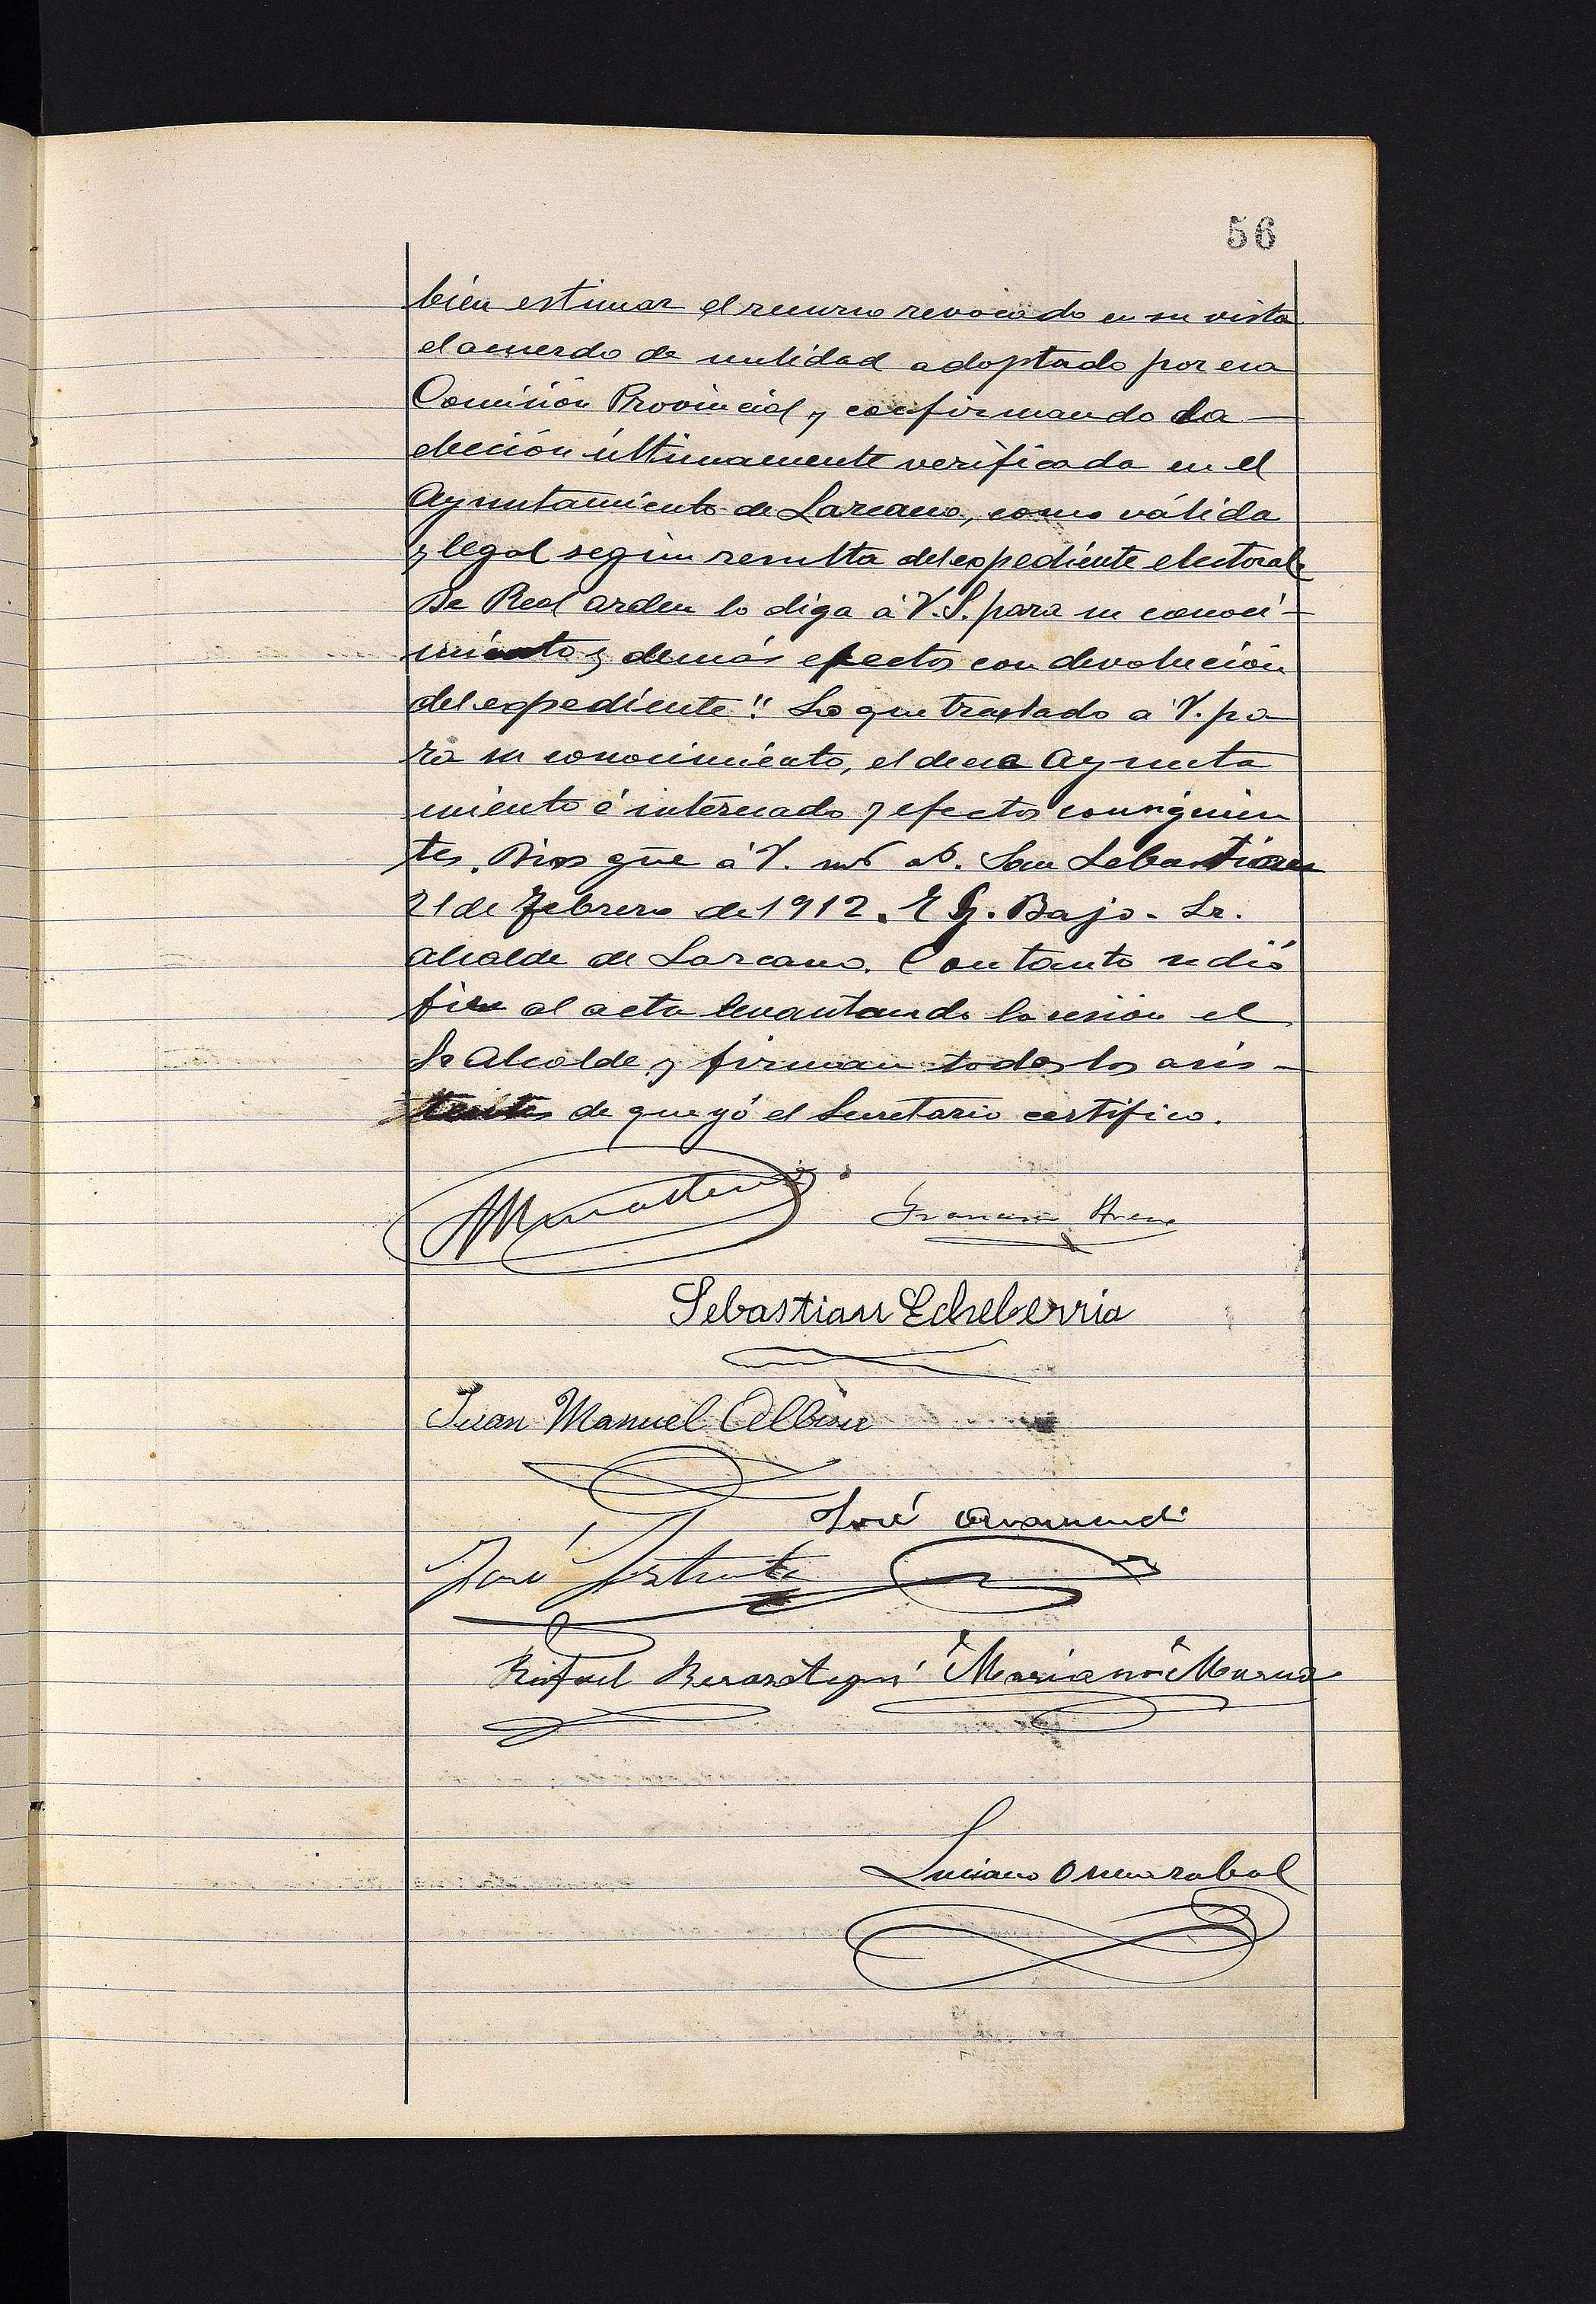 56
bién estimar el recurso revocado en su vista
el acuerdo de nulidad adoptado por esa
Comisión Provincial y confirmando la
elección últimamente verificada en el
Ayuntamiento de Lazcano, como válida
y legal según resulta del expediente electoral.
De Real orden lo diga á V.S. para su conoci-
miento y demás efectos con devolución
del expediente". Lo que traslado a V. pa-
ra su conocimiento, el de esa Ayunta
miento é interesado y efectos consiguien
tes. Dios gue á V. ms as. San Sebastian
21 de Febrero de 1912. El G. Bajo. Sr.
Alcalde de Lazcano. Con tanto se dió
fin al acta levantando la sesión el
Sr Alcalde y firman todos los asis-
tentes de que yó el Secretario certifico.
Sebastian Echeberria
Juan Manuel Albisu
José
José
Rafael Berasategui Mariano
Luciano